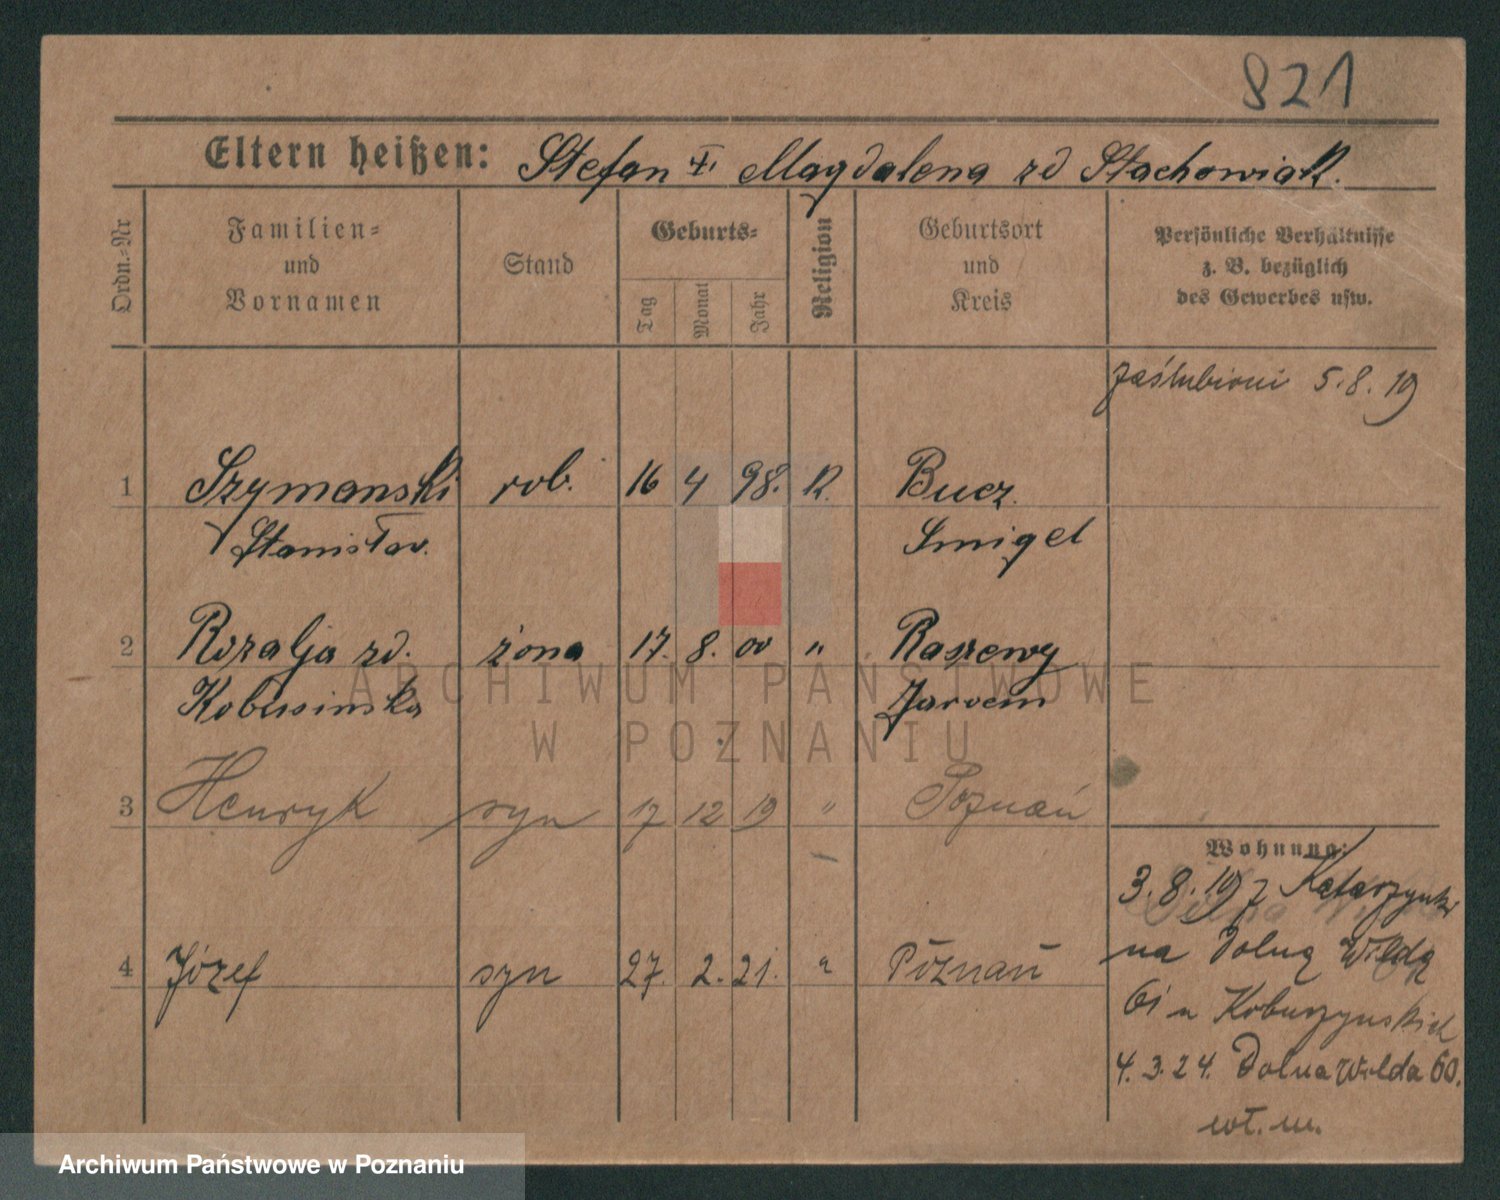 821
Eltern heißen: Stefan i Magdalena zd Stachowiak.
Ordn.-Nr
Familien- und Vornamen
Stand
Geburts-
Tag
Monat
Jahr
Religion
Geburtsort und Kreis
Persönliche Verhältnisse z. B. bezüglich des Gewerbes usw.
zaślubieni 5.8.19
1 Szymanski rob. 16 4 98. K. Bucz
Stanisław. Smigel
2 Rozalja zd. żona 17. 8. 00 " Raszewy
Kobusinska Jarocin
ARCHIWUM PAŃSTWOWE
W POZNANIU
3 Henryk syn 17 12 19 " Poznań
Wohnung:
3.8.19 z Katarzynki
4 Józef syn 27. 2. 21. " Poznań
na Dolną Wildę
61 u Kobuszynskich
4.3.24. Dolna Wilda 60.
wł. m.
Archiwum Państwowe w Poznaniu